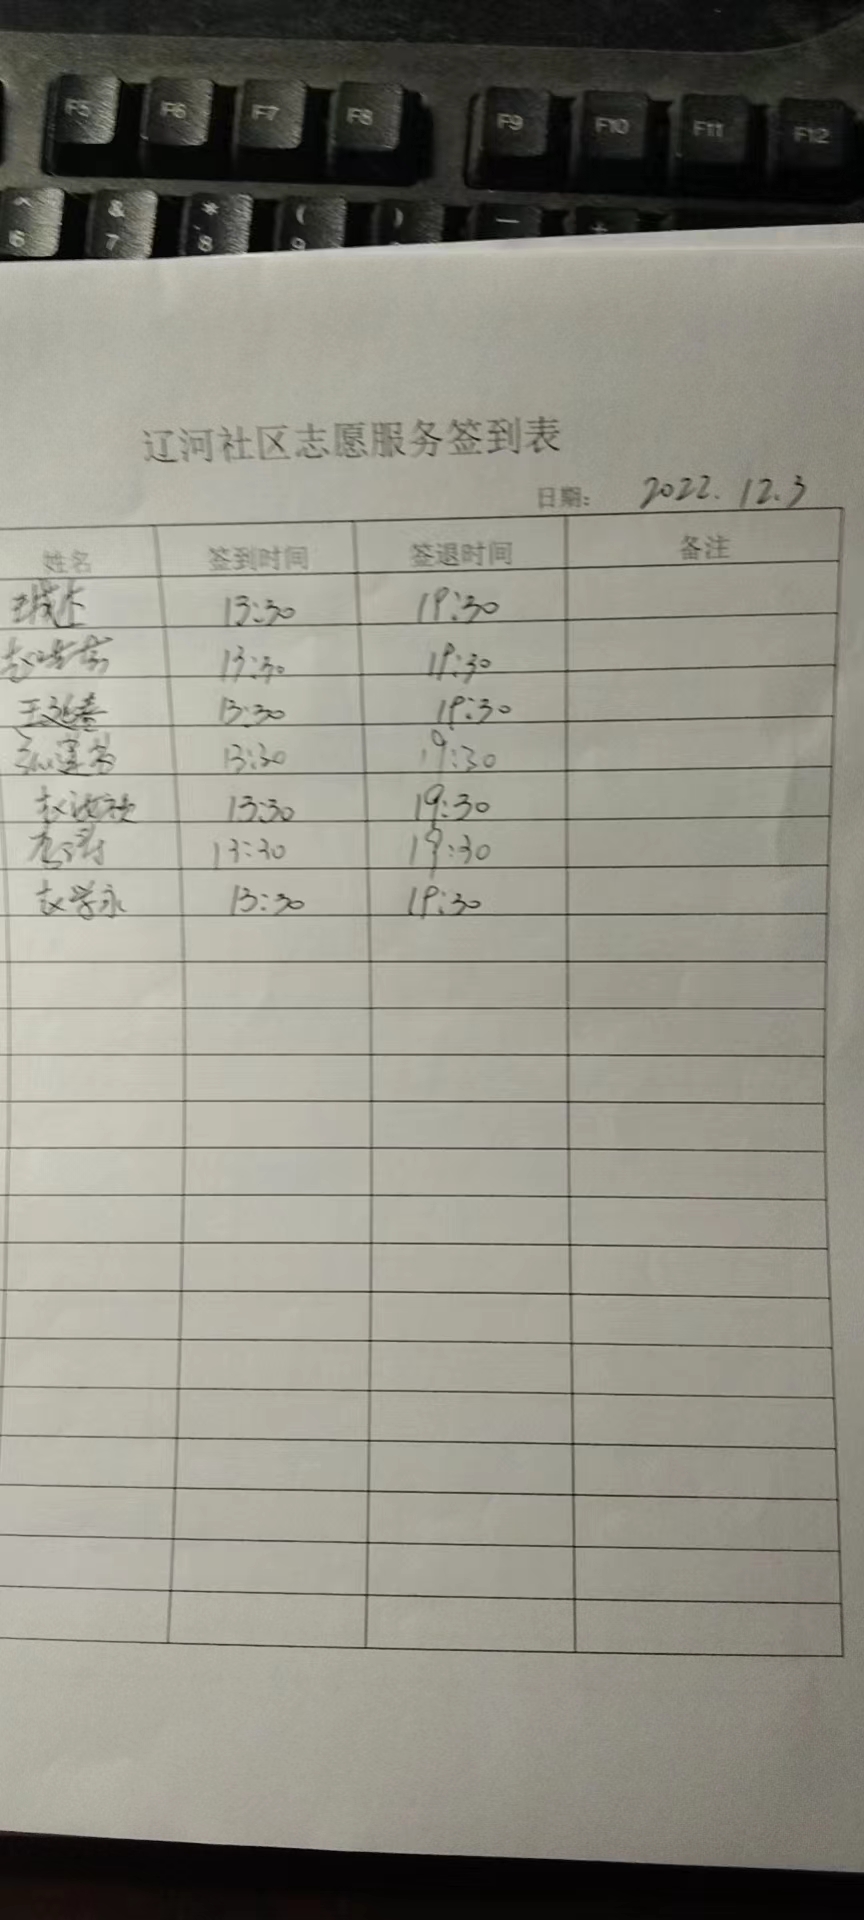 F5 F6 F7 F8 F9 F10 F11 F12
^ & * ( ) — +
6 7 8 9
辽河社区志愿服务签到表
日期： 2022.12.3
姓名 签到时间 签退时间 备注
13:30 19:30
13:30 19:30
13:30 19:30
13:30 19:30
13:30 19:30
13:30 19:30
赵学永 13:30 19:30